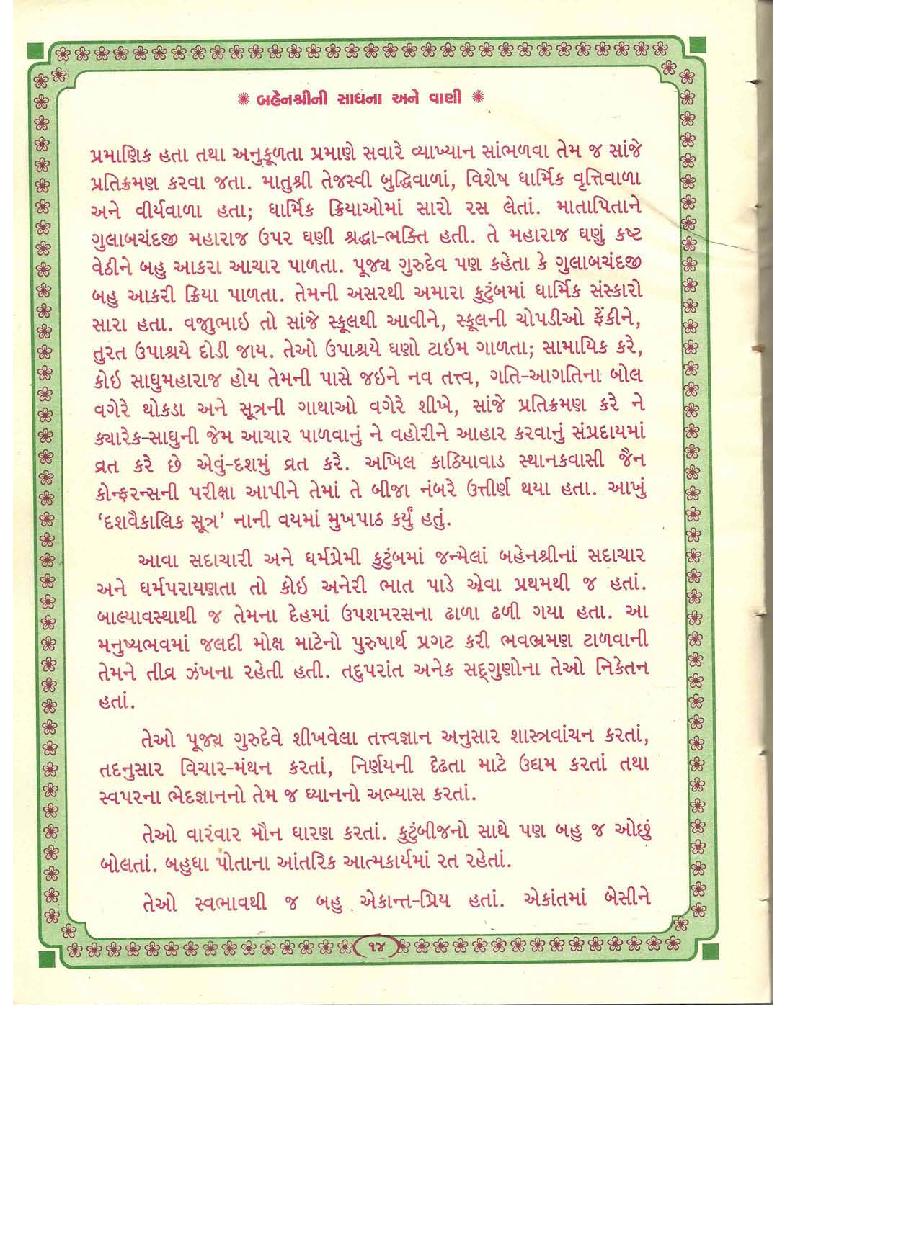 ❋ બહેનશ્રીની સાધના અને વાણી ❋
પ્રમાણિક હતા તથા અનુકૂળતા પ્રમાણે સવારે વ્યાખ્યાન સાંભળવા તેમ જ સાંજે
પ્રતિક્રમણ કરવા જતા. માતુશ્રી તેજસ્વી બુદ્ધિવાળાં, વિશેષ ધાર્મિક વૃત્તિવાળા
અને વીર્યવાળા હતા; ધાર્મિક ક્રિયાઓમાં સારો રસ લેતાં. માતાપિતાને
ગુલાબચંદજી મહારાજ ઉપર ઘણી શ્રદ્ધા-ભક્તિ હતી. તે મહારાજ ઘણું કષ્ટ
વેઠીને બહુ આકરા આચાર પાળતા. પૂજ્ય ગુરુદેવ પણ કહેતા કે ગુલાબચંદજી
બહુ આકરી ક્રિયા પાળતા. તેમની અસરથી અમારા કુટુંબમાં ધાર્મિક સંસ્કારો
સારા હતા. વજુભાઇ તો સાંજે સ્કૂલથી આવીને, સ્કૂલની ચોપડીઓ ફેંકીને,
તુરત ઉપાશ્રયે દોડી જાય. તેઓ ઉપાશ્રયે ઘણો ટાઇમ ગાળતા; સામાયિક કરે,
કોઇ સાધુમહારાજ હોય તેમની પાસે જઇને નવ તત્ત્વ, ગતિ-આગતિના બોલ
વગેરે થોકડા અને સૂત્રની ગાથાઓ વગેરે શીખે, સાંજે પ્રતિક્રમણ કરે ને
ક્યારેક-સાધુની જેમ આચાર પાળવાનું ને વહોરીને આહાર કરવાનું સંપ્રદાયમાં
વ્રત કરે છે એવું-દશમું વ્રત કરે. અખિલ કાઠિયાવાડ સ્થાનકવાસી જૈન
કોન્ફરન્સની પરીક્ષા આપીને તેમાં તે બીજા નંબરે ઉત્તીર્ણ થયા હતા. આખું
‘દશવૈકાલિક સૂત્ર’ નાની વયમાં મુખપાઠ કર્યું હતું.
આવા સદાચારી અને ધર્મપ્રેમી કુટુંબમાં જન્મેલાં બહેનશ્રીનાં સદાચાર
અને ધર્મપરાયણતા તો કોઇ અનેરી ભાત પાડે એવા પ્રથમથી જ હતાં.
બાલ્યાવસ્થાથી જ તેમના દેહમાં ઉપશમરસના ઢાળા ઢળી ગયા હતા. આ
મનુષ્યભવમાં જલદી મોક્ષ માટેનો પુરુષાર્થ પ્રગટ કરી ભવભ્રમણ ટાળવાની
તેમને તીવ્ર ઝંખના રહેતી હતી. તદુપરાંત અનેક સદ્‌ગુણોના તેઓ નિકેતન
હતાં.
તેઓ પૂજ્ય ગુરુદેવે શીખવેલા તત્ત્વજ્ઞાન અનુસાર શાસ્ત્રવાંચન કરતાં,
તદનુસાર વિચાર-મંથન કરતાં, નિર્ણયની દૃઢતા માટે ઉદ્યમ કરતાં તથા
સ્વપરના ભેદજ્ઞાનનો તેમ જ ધ્યાનનો અભ્યાસ કરતાં.
તેઓ વારંવાર મૌન ધારણ કરતાં. કુટુંબીજનો સાથે પણ બહુ જ ઓછું
બોલતાં. બહુધા પોતાના આંતરિક આત્મકાર્યમાં રત રહેતાં.
તેઓ સ્વભાવથી જ બહુ એકાન્ત-પ્રિય હતાં. એકાંતમાં બેસીને
૧૪